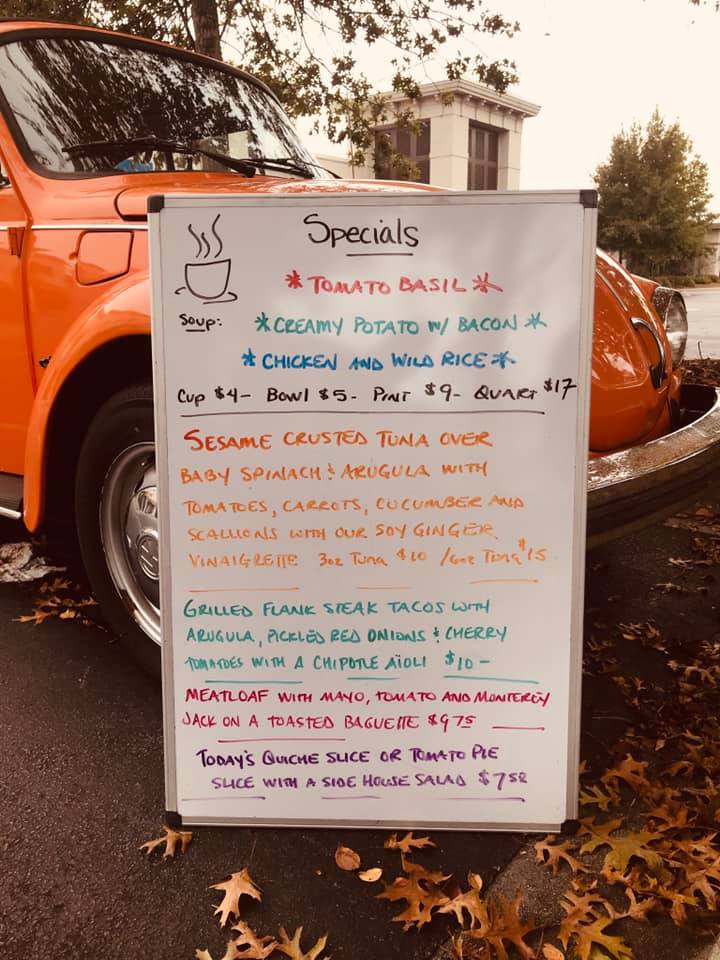 Specials
*TOMATO BASIL*
Soup: *CREAMY POTATO W/ BACON*
*CHICKEN AND WILD RICE*
Cup $4- Bowl $5- PINT $9- QUART $17
SESAME CRUSTED TUNA OVER
BABY SPINACH & ARUGULA WITH
TOMATOES, CARROTS, CUCUMBER AND
SCALLIONS WITH OUR SOY GINGER
VINAIGRETTE 3oz Tuna $10 /6oz Tuna $15
GRILLED FLANK STEAK TACOS WITH
ARUGULA, PICKLED RED ONIONS & CHERRY
TOMATOES WITH A CHIPOTLE AÏOLI $10-
MEATLOAF WITH MAYO, TOMATO AND MONTEREY
JACK ON A TOASTED BAGUETTE $9.75
TODAY'S QUICHE SLICE OR TOMATO PIE
SLICE WITH A SIDE HOUSE SALAD $7.50